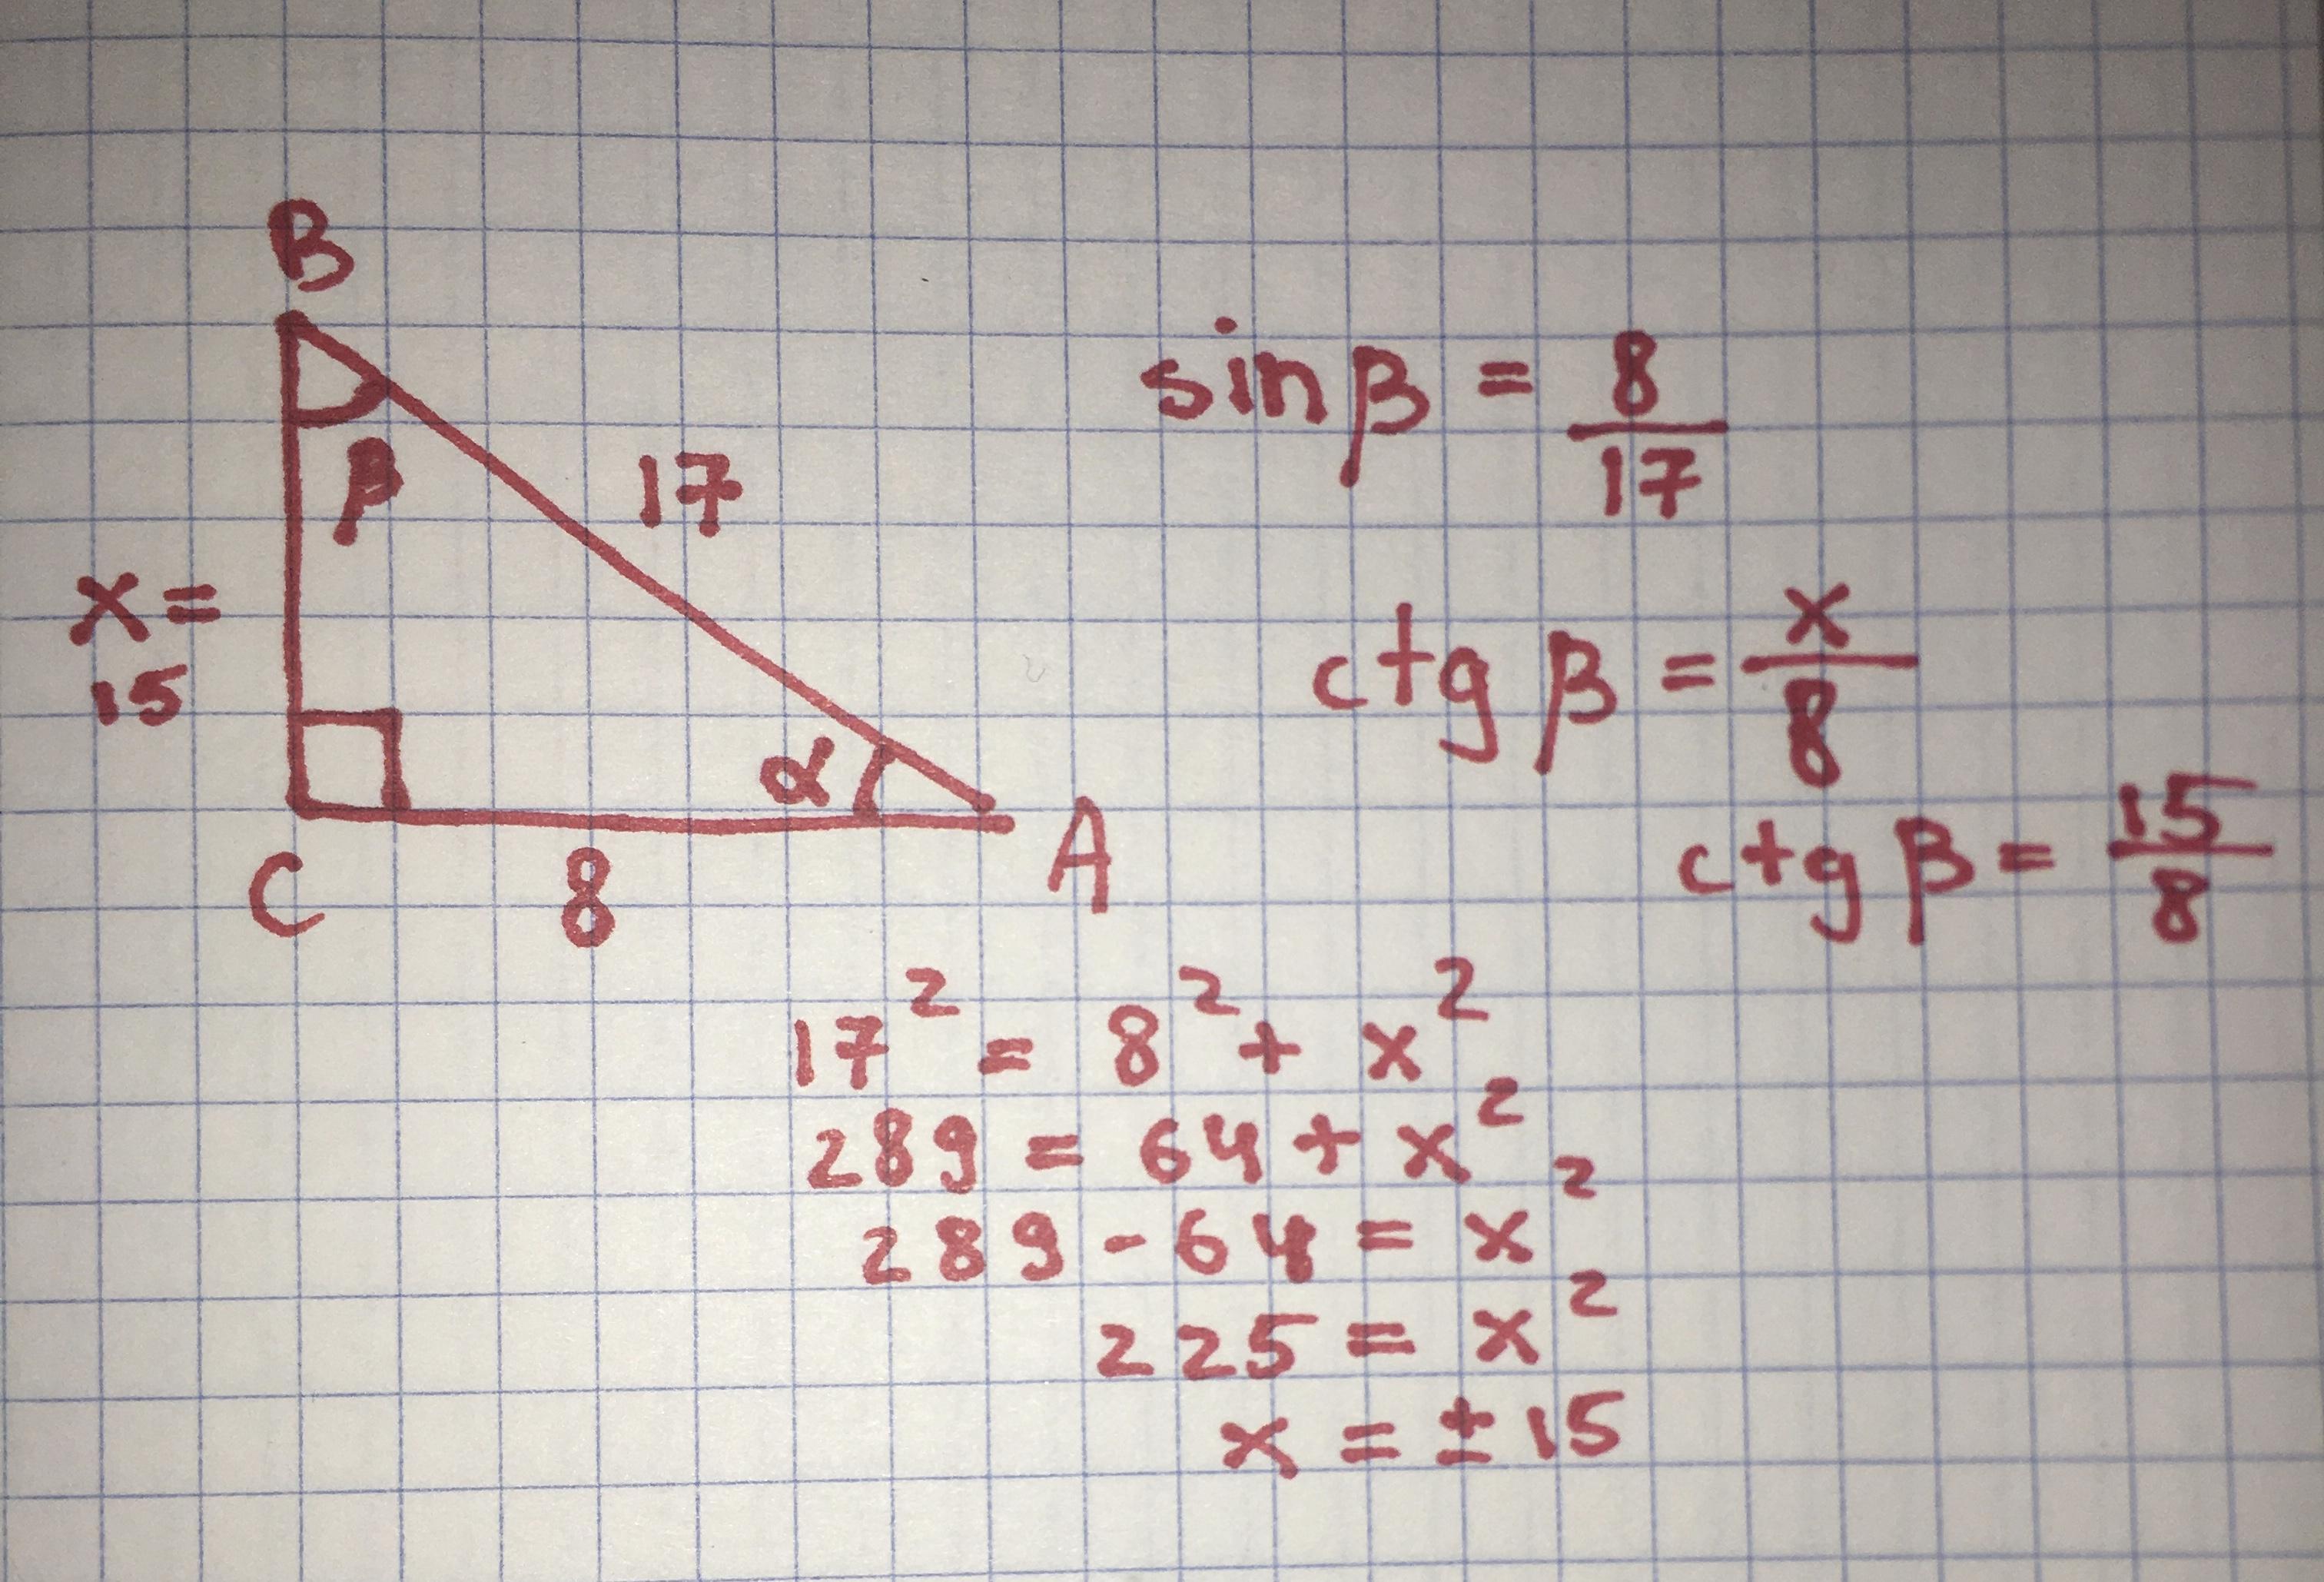 B
β
17
x =
15
α
C
8
A
sin β = 8/17
ctg β = x/8
ctg β = 15/8
17² = 8² + x²
289 = 64 + x²
289 - 64 = x²
225 = x²
x = ± 15